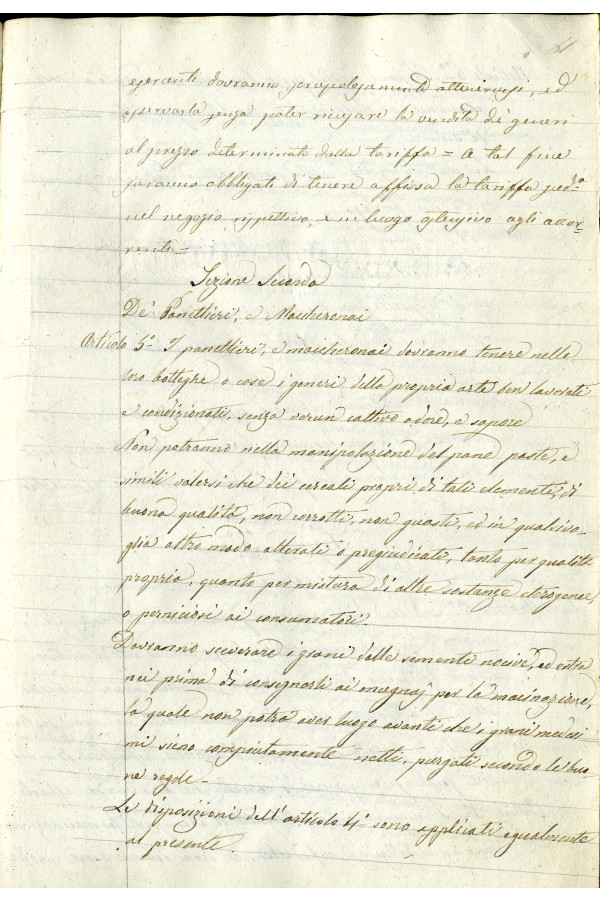 esercenti dovranno scrupolosamente attenervisi, ed
osservarla senza poter ricusare la vendita de' generi
al prezzo determinato dalla tariffa = A tal fine
saranno obbligati di tenere affissa la tariffa sudda
nel negozio rispettivo, e in luogo ostensivo agli accor-
renti =
Sezione Seconda
De' Panettieri, e Maccheronai
Articolo 5° I panettieri, e maccheronai dovranno tenere nelle
loro botteghe o case i generi della propria arte ben lavorati
e condizionati, senza verun cattivo odore, e sapore
Non potranno nella manipolazione del pane paste, e
simili valersi che dei cereali propri di tali elementi, di
buona qualità, non corrotti, non guasti, ed in qualsivo-
glia altro modo alterati o pregiudicati, tanto per qualità
propria, quanto per mistura di altre sostanze eterogenee,
o perniciosi ai consumatori.
Dovranno sceverare i grani dalle sementi nocive, ed estra
nei prima di consegnarli ai mugnaj per la macinazione,
la quale non potrà aver luogo avanti che i grani medesi
mi sieno compiutamente netti, purgati secondo le buo-
ne regole.
Le disposizioni dell'articolo 4° sono applicati egualmente
al presente